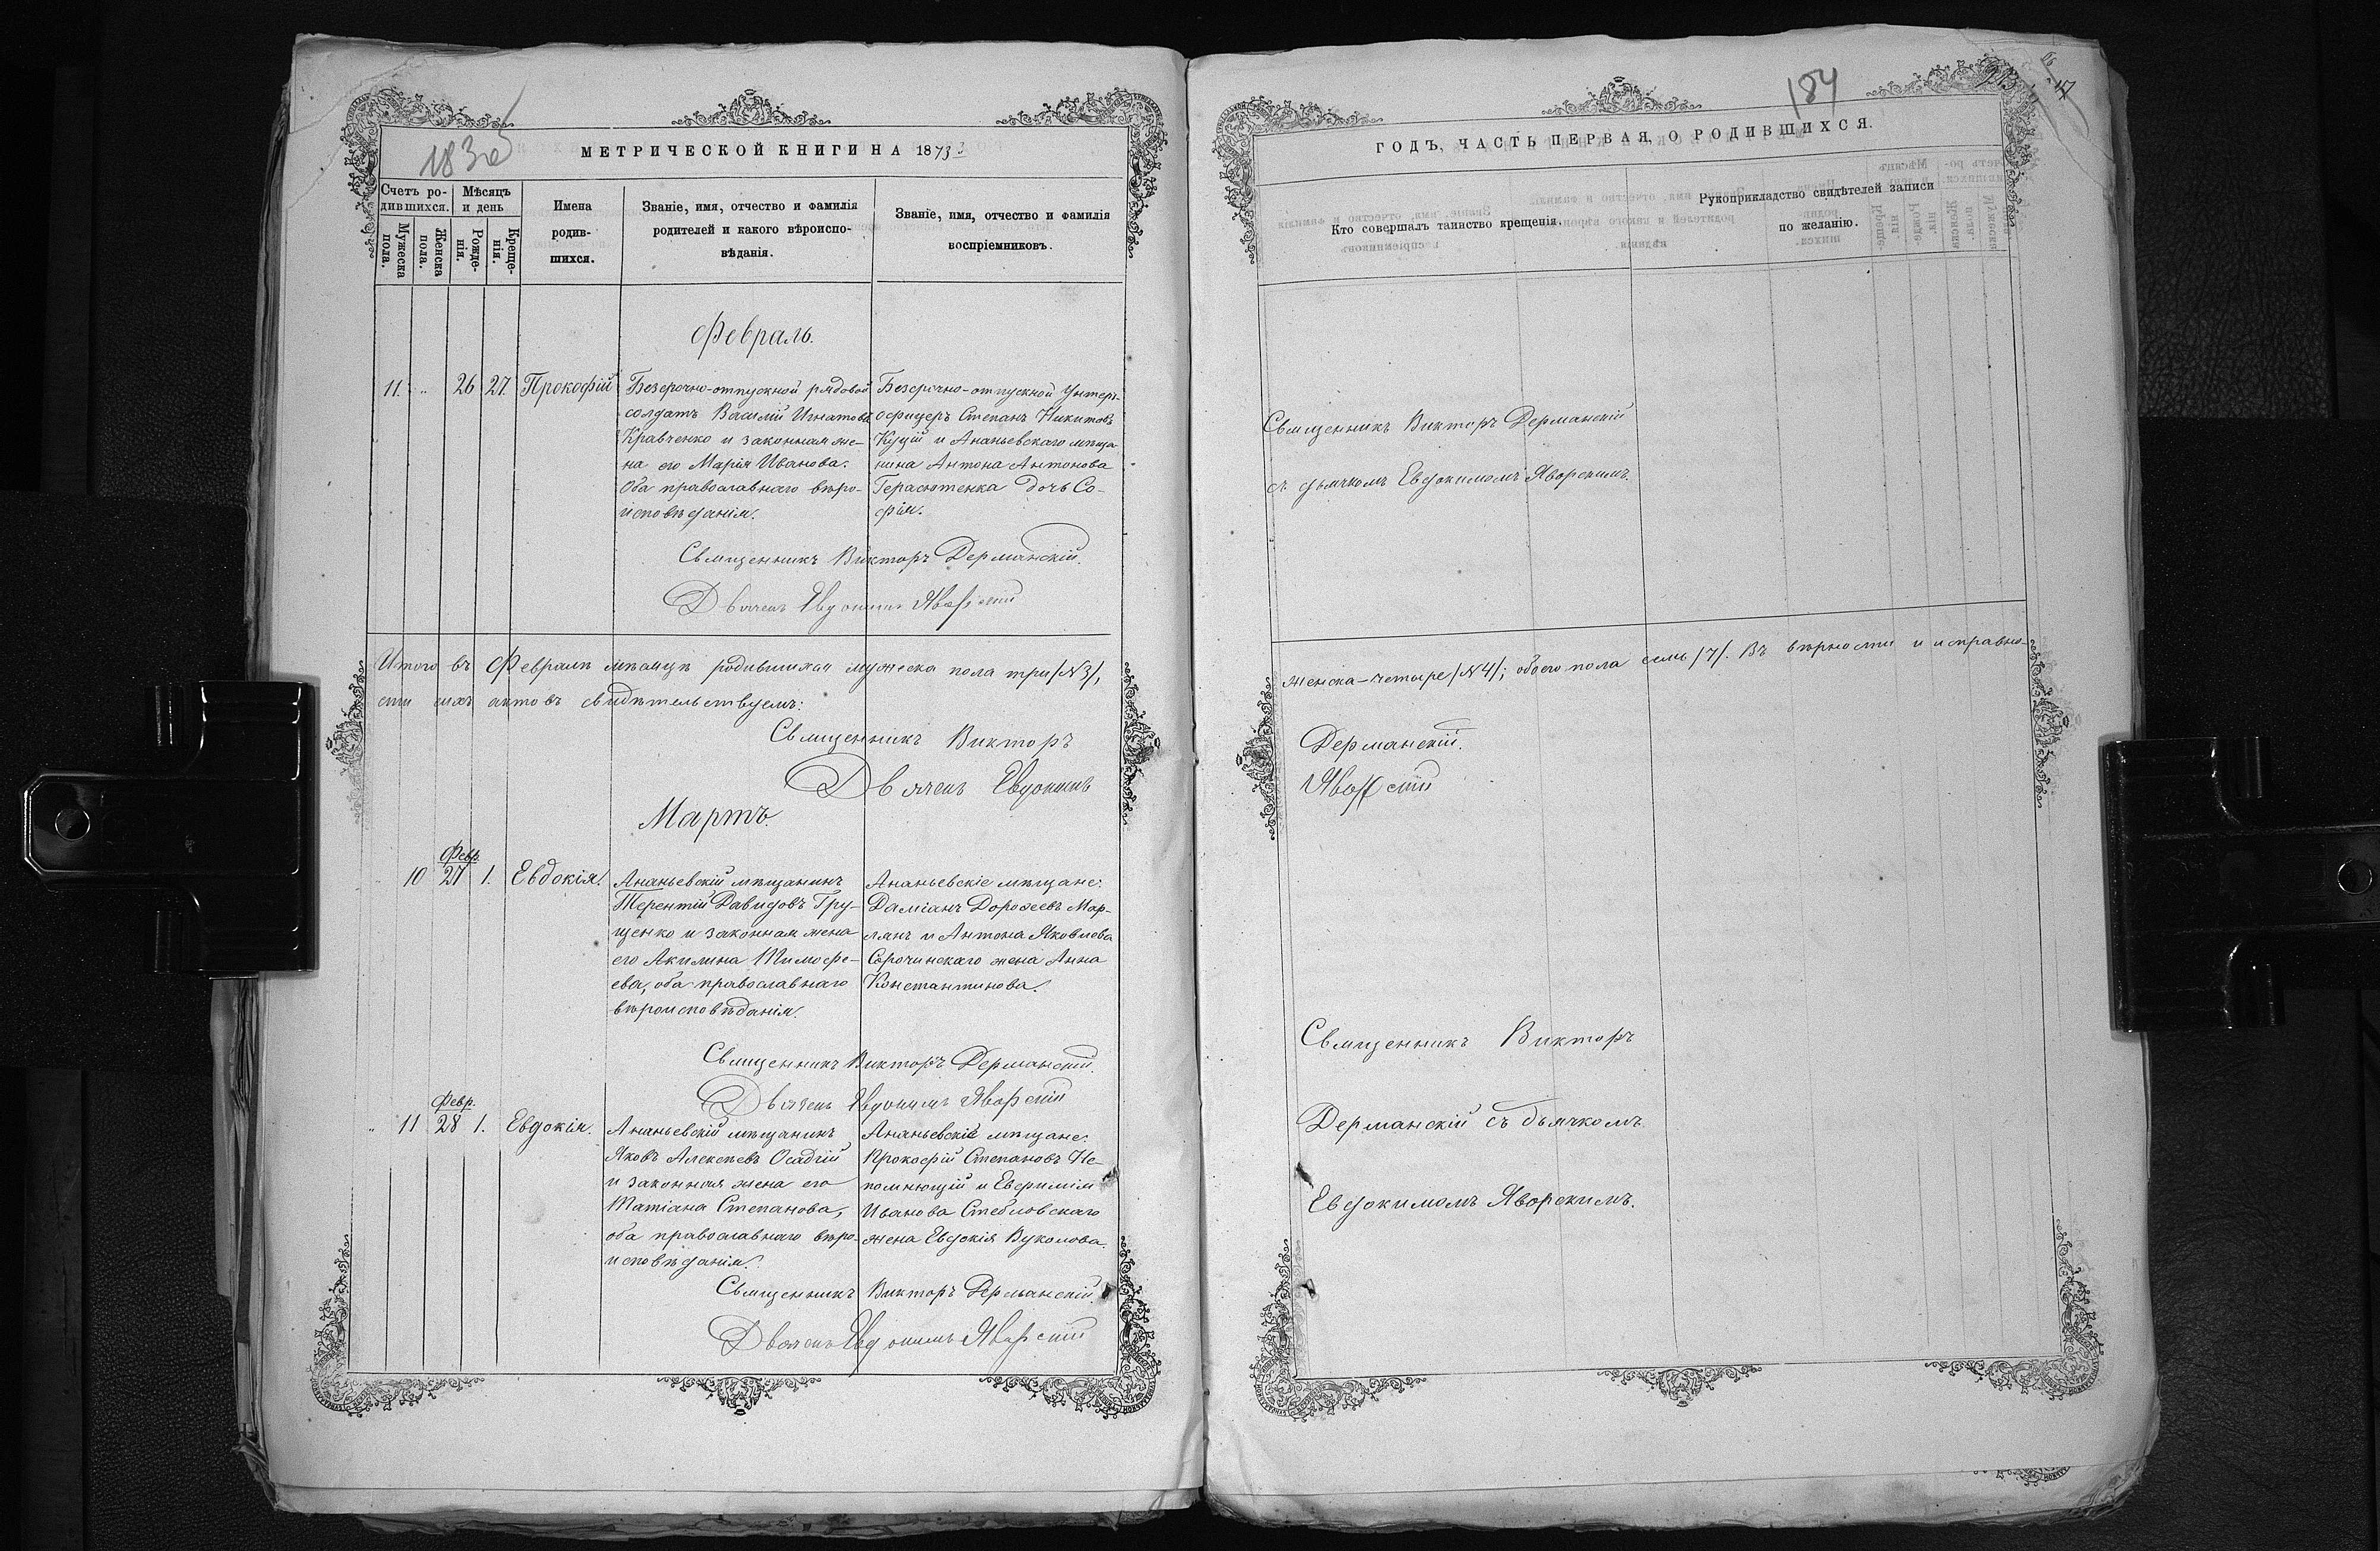 183 об
МЕТРИЧЕСКОЙ КНИГИ НА 1873
Счетъ ро-
дившихся.
Мѣсяцъ
и день
Мужеска
пола.
Женска
пола.
Рожде-
нія.
Креще-
нія.
Имена
родив-
шихся.
Званіе, имя, отчество и фамилія
родителей и какого вѣроиспо-
вѣданія.
Званіе, имя, отчество и фамилія
воспріемниковъ.
Февраль.
11. „ 26 27. Прокофій
Безсрочно-отпускной рядовой
солдатъ Василій Игнатовъ
Кравченко и законная же-
на его Марія Иванова.
Оба православнаго вѣро-
исповѣданія.
Безсрочно-отпускной Унтеръ-
офицеръ Степанъ Никитовъ
Куцій и Ананьевскаго мѣща-
нина Антона Антонова
Герасютенка дочь Со-
фія.
Священникъ Викторъ Дерманскій.
Дьячекъ Евдокимъ Яворскій
Итого въ Февралѣ мѣсяцѣ родившихся мужеска пола три /№3/,
сти сихъ актовъ свидѣтельствуемъ:
Священникъ Викторъ
Дьячекъ Евдокимъ
Мартъ.
Февр.
10 27 1. Евдокія.
Ананьевскій мѣщанинъ
Терентій Давидовъ Гру-
щенко и законная жена
его Акилина Тимофе-
ева, оба православнаго
вѣроисповѣданія.
Ананьевскіе мѣщане:
Даміанъ Дорофеевъ Мар-
лянъ и Антона Яковлева
Сорочинскаго жена Анна
Константинова.
Священникъ Викторъ Дерманскій.
Дьячекъ Евдокимъ Яворскій
Февр.
„ 11 28 1. Евдокія.
Ананьевскій мѣщанинъ
Яковъ Алексѣевъ Осадчій
и законная жена его
Татіана Степанова,
оба православнаго вѣро-
исповѣданія.
Ананьевскіе мѣщане:
Прокофій Степановъ Не-
помнющій и Евфимія
Иванова Стебловскаго
жена Евдокія Вуколова.
Священникъ Викторъ Дерманскій.
Дьячекъ Евдокимъ Яворскій
184
ГОДЪ, ЧАСТЬ ПЕРВАЯ, О РОДИВШИХСЯ.
Кто совершалъ таинство крещенія.
Рукоприкладство свидѣтелей записи
по желанію.
Священникъ Викторъ Дерманскій
съ дьячкомъ Евдокимомъ Яворскимъ.
женска – четыре /№4/; обоего пола семь /7/. Въ вѣрности и исправно-
Дерманскій.
Яворскій
Священникъ Викторъ
Дерманскій съ дьячкомъ
Евдокимомъ Яворскимъ.